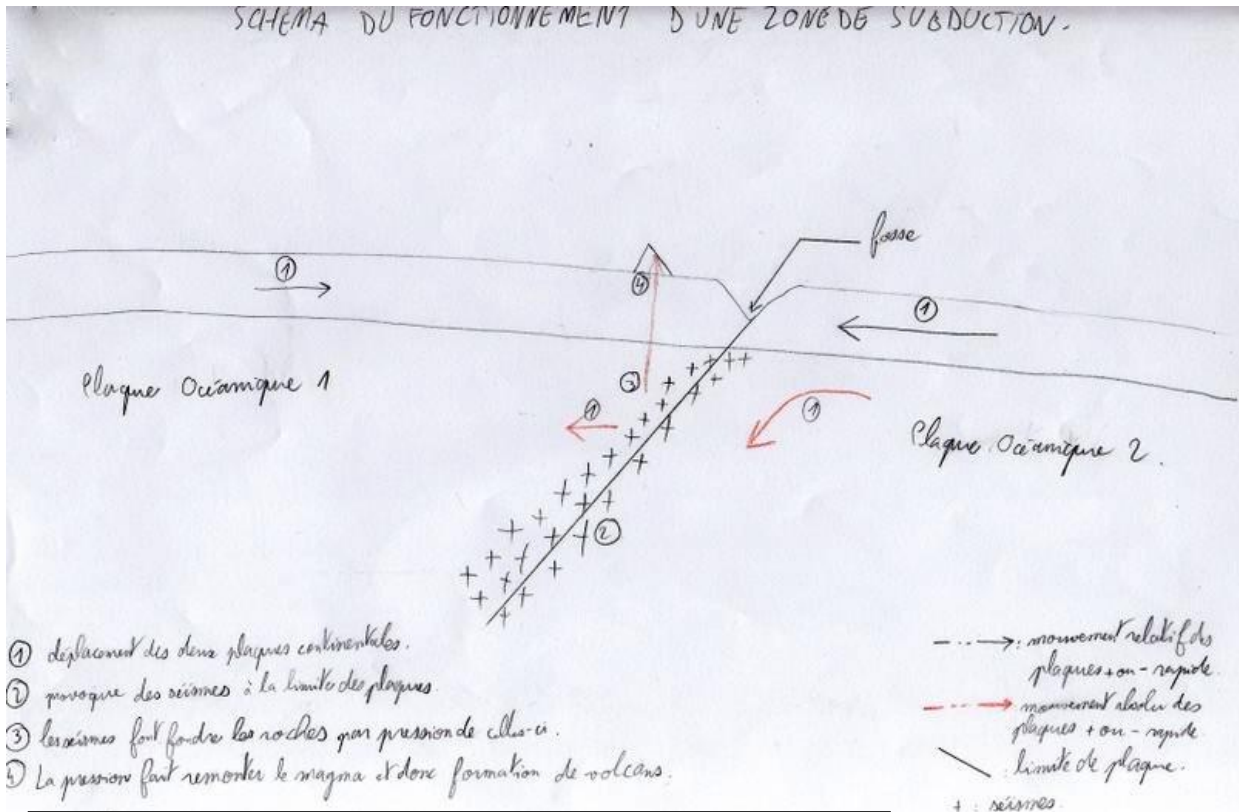 SCHEMA DU FONCTIONNEMENT D'UNE ZONE DE SUBDUCTION.
fosse
①
④
①
Plaque Océanique 1
③
①
①
Plaque Océanique 2.
②
① déplacement des deux plaques continentales.
② provoque des séismes à la limite des plaques.
③ les séismes font fondre les roches par pression de celles-ci.
④ La pression fait remonter le magma et donc formation de volcans.
: mouvement relatif des
plaques + ou - rapide.
mouvement absolu des
plaques + ou - rapide
: limite de plaque.
+ : séismes.